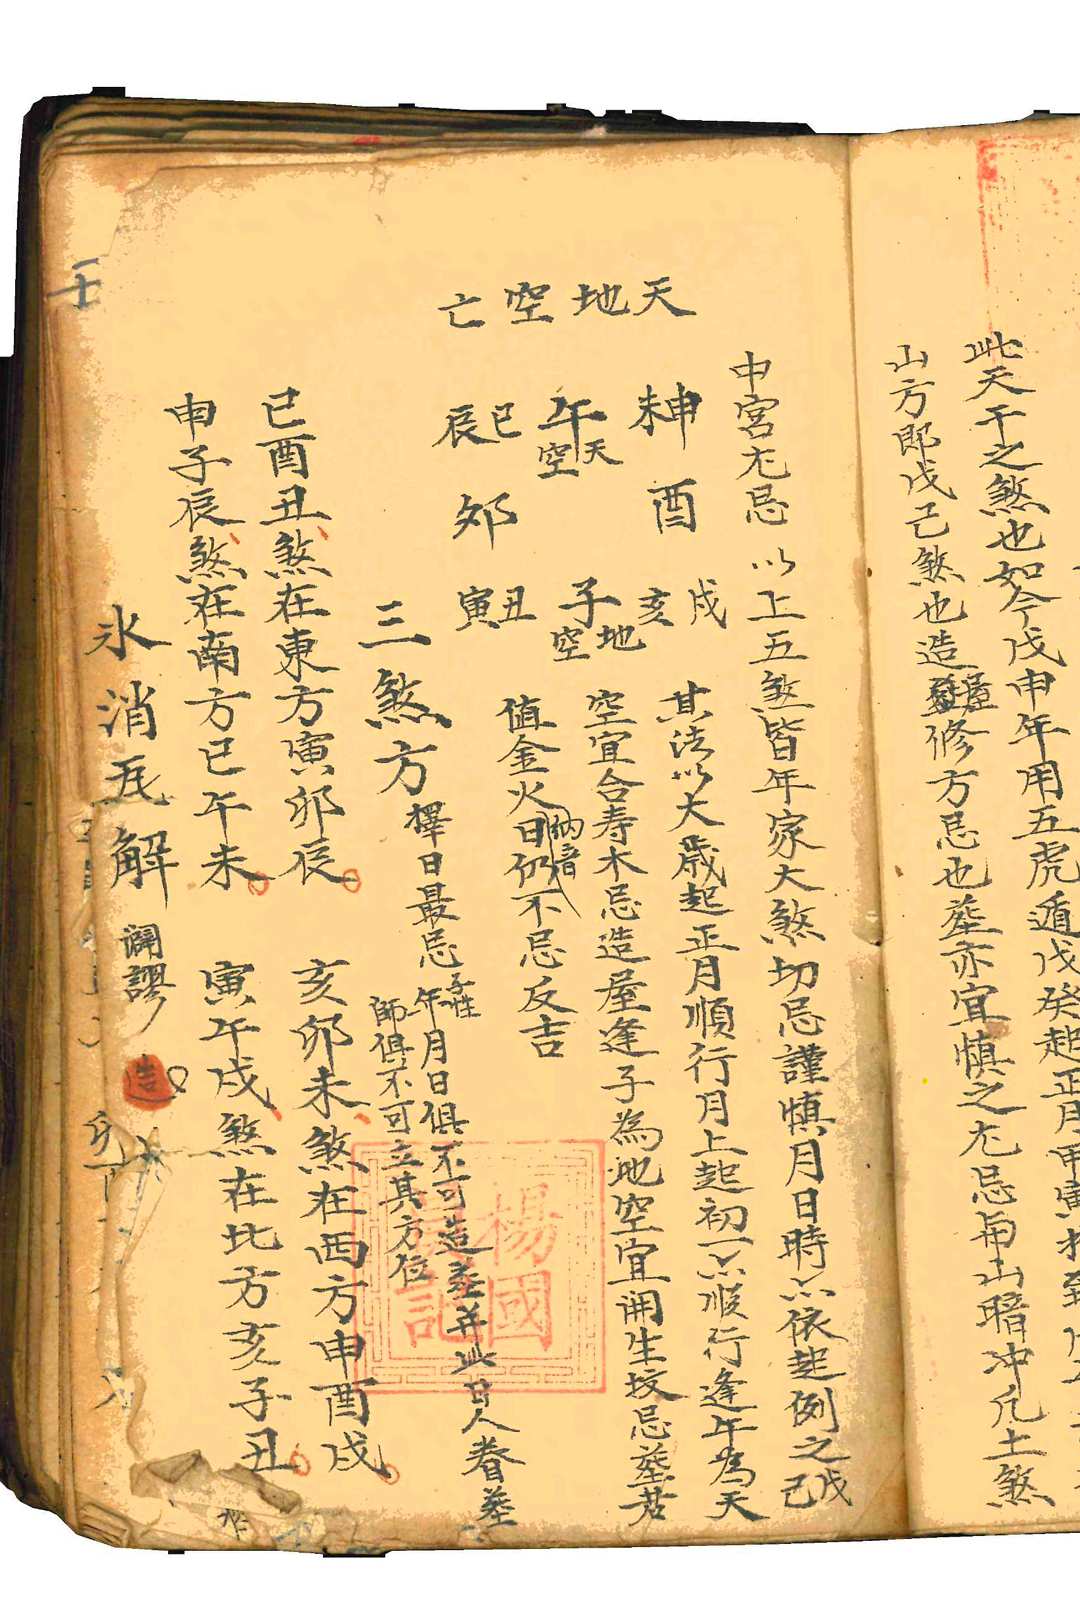 此天干之煞也如今戊申年用五虎遁戊癸起正月甲寅
山方即戊己煞也造屋葬修方忌也葬亦宜慎之尤忌用山暗冲凡土煞
中宮尤忌 以上五煞皆年家大煞切忌謹慎月日時亦依起例之戊己
天地空亡
未申 酉 戌亥
午天空 子地空
巳辰 卯 丑寅
其法以大歲起正月順行月上起初一亦順行逢午為天
空宜合寿木忌造屋逢子為地空宜開生坟忌葬若
值金火日納音仍不忌反吉
三煞方 擇日最忌
年月日俱不可造葬并此日人眷葬
師俱不可立其方位
巳酉丑煞在東方寅卯辰 亥卯未煞在西方申酉戌
申子辰煞在南方巳午未 寅午戌煞在北方亥子丑
氷消瓦解
楊國
記